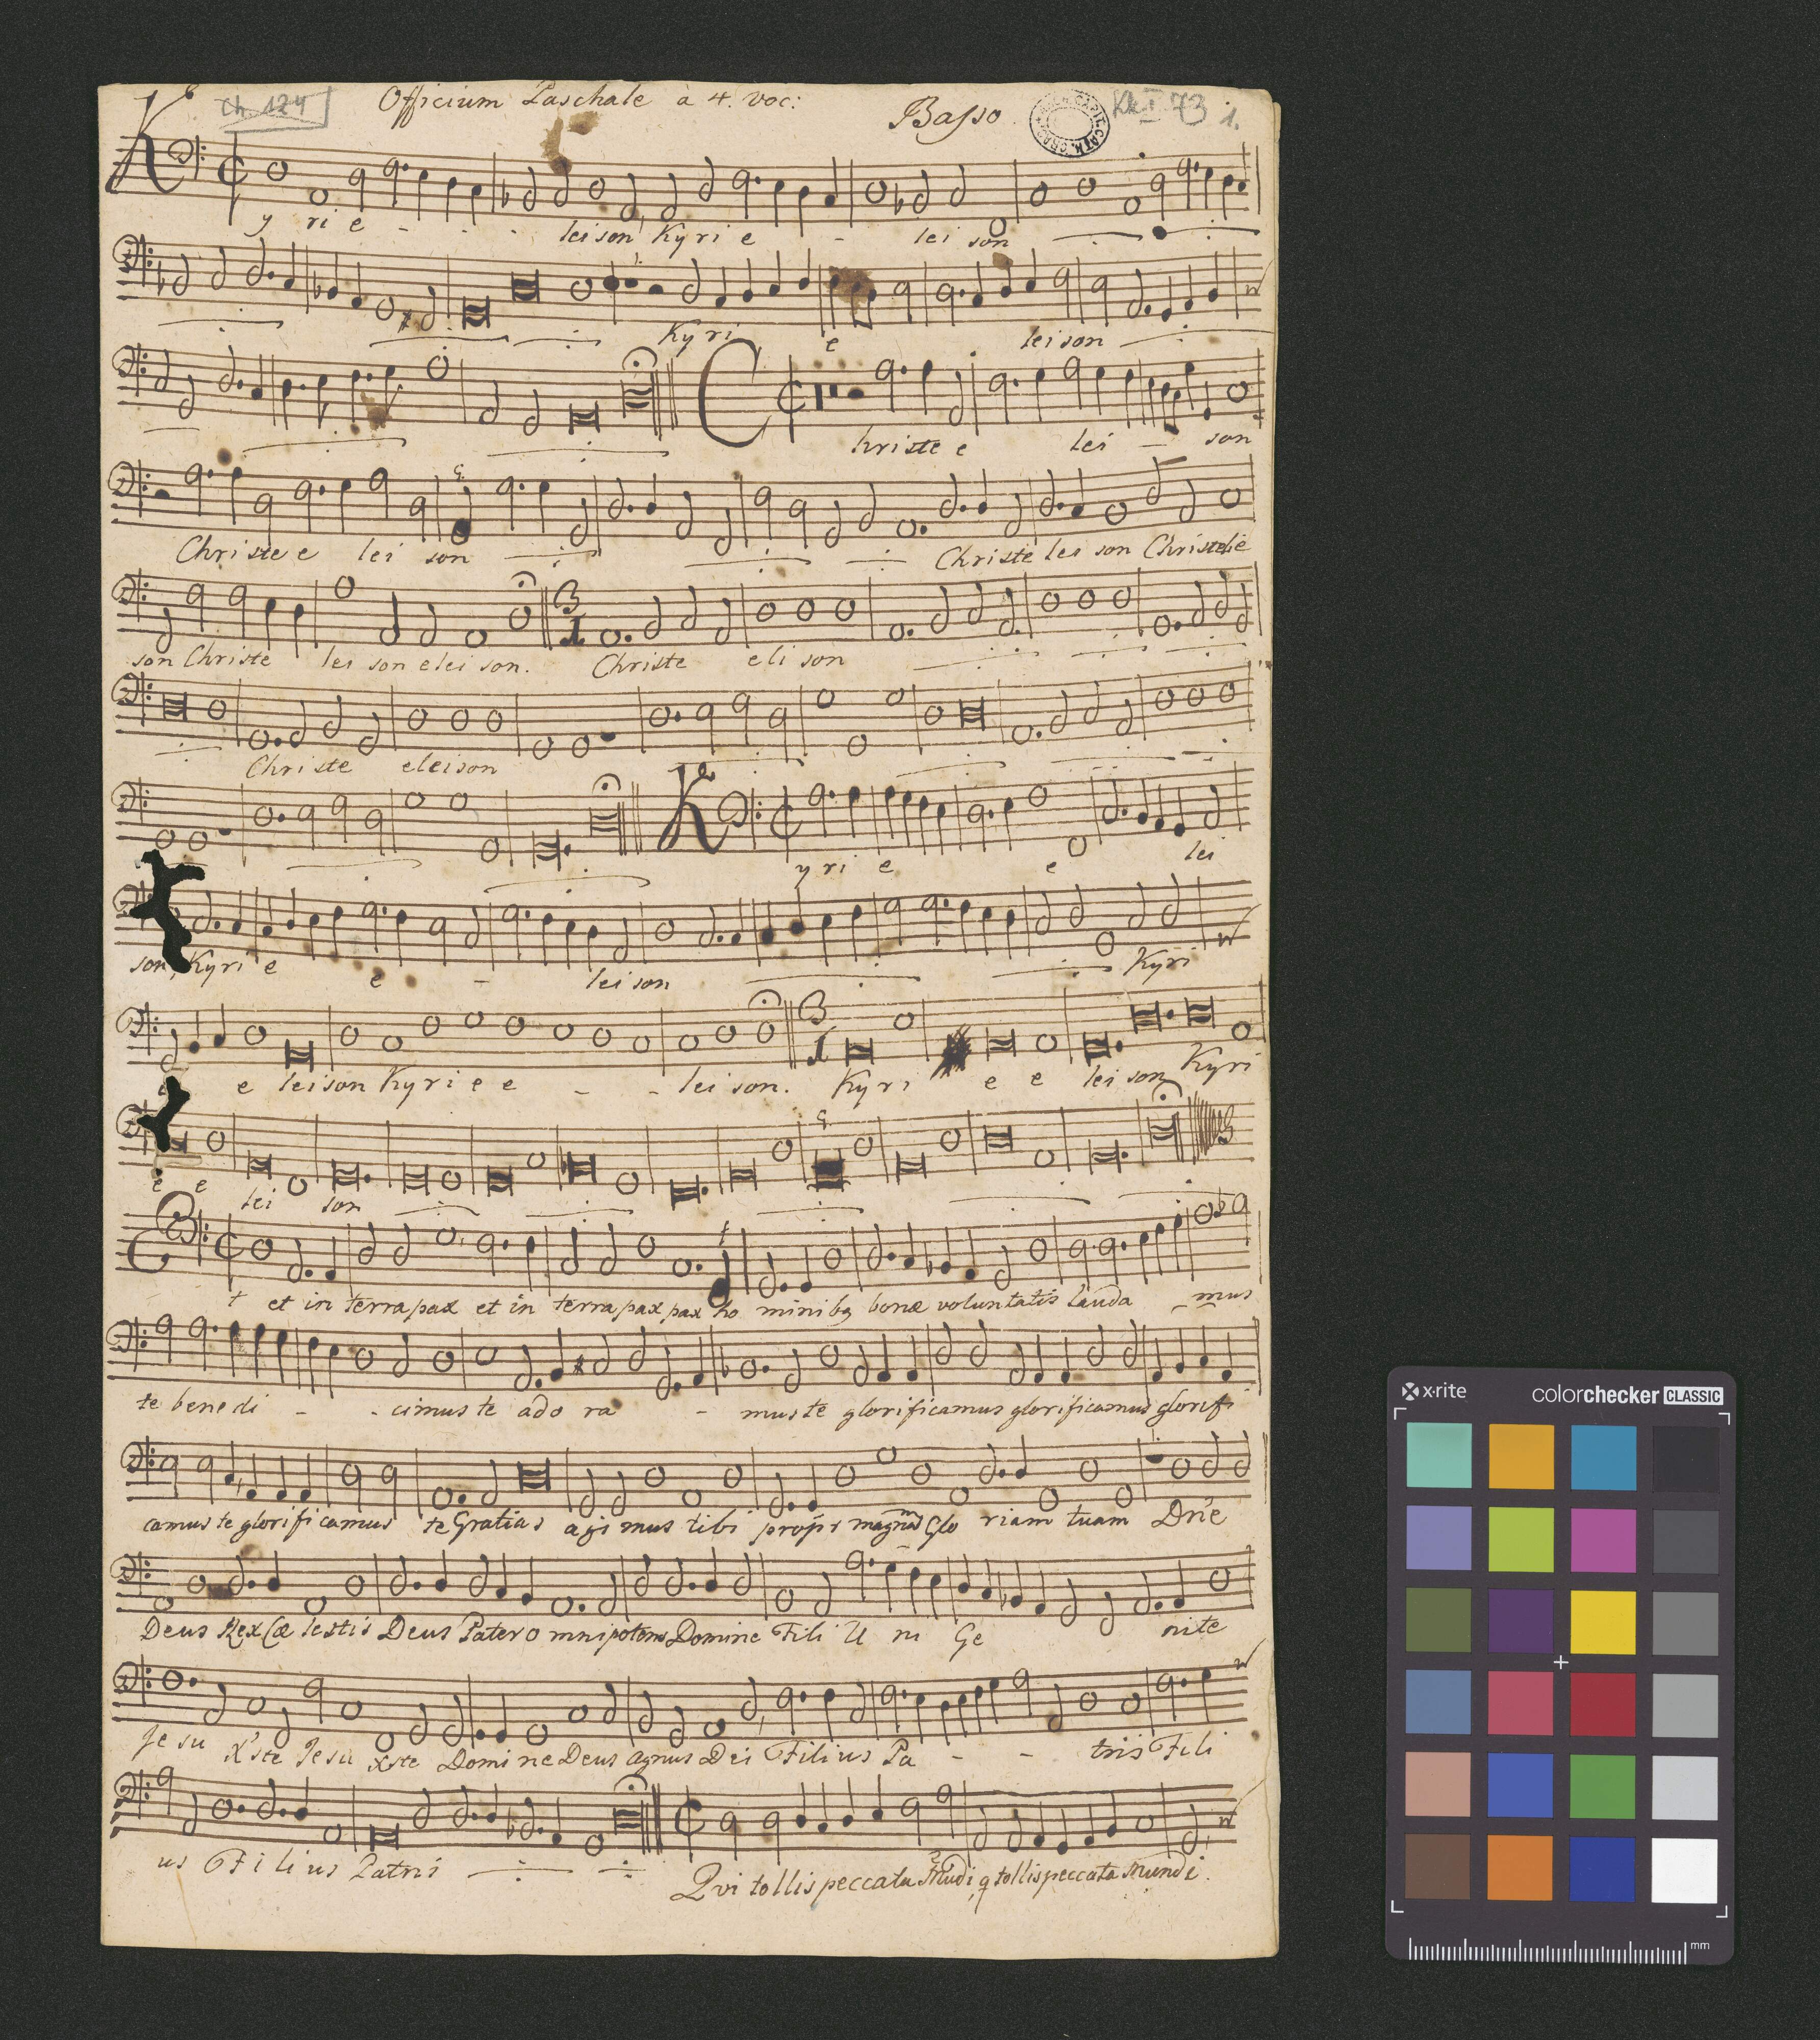 Ch 124 Officium Paschale à 4. voc: Basso. Kk I 73 1.
Ky ri e - - - lei son Ky ri e - lei son
Ky ri e lei son
Christe e lei - son
Chri ste e lei son Christe lei son Christe lei
son Christe lei son e lei son. Christe e li son
Christe elei son
Ky ri e e lei
son, Kyri e e - lei son Kyri
e lei son Ky ri e e - - lei son. Ky ri e e lei son Kyri
e e lei son
Et et in terra pax et in terra pax pax ho minibq bonæ voluntatis lauda - mus
te bene di - - cimus te ado ra - mus te glorificamus glorificamus glorifi
camus te glorifi camus te Gratias agi mus tibi propr magnā Glo riam tuam Dn̄e
Deus Rex Cœ lestis Deus Pater o mnipotens Domine Fili U ni Ge nite
Je su X'ste Jesu xste Domi ne Deus agnus Dei Filius Pa - - tris Fili
us Fi li us Patris
Qvi tollis peccata Mūdi, q tollis peccata Mundi.
x·rite colorchecker CLASSIC
mm